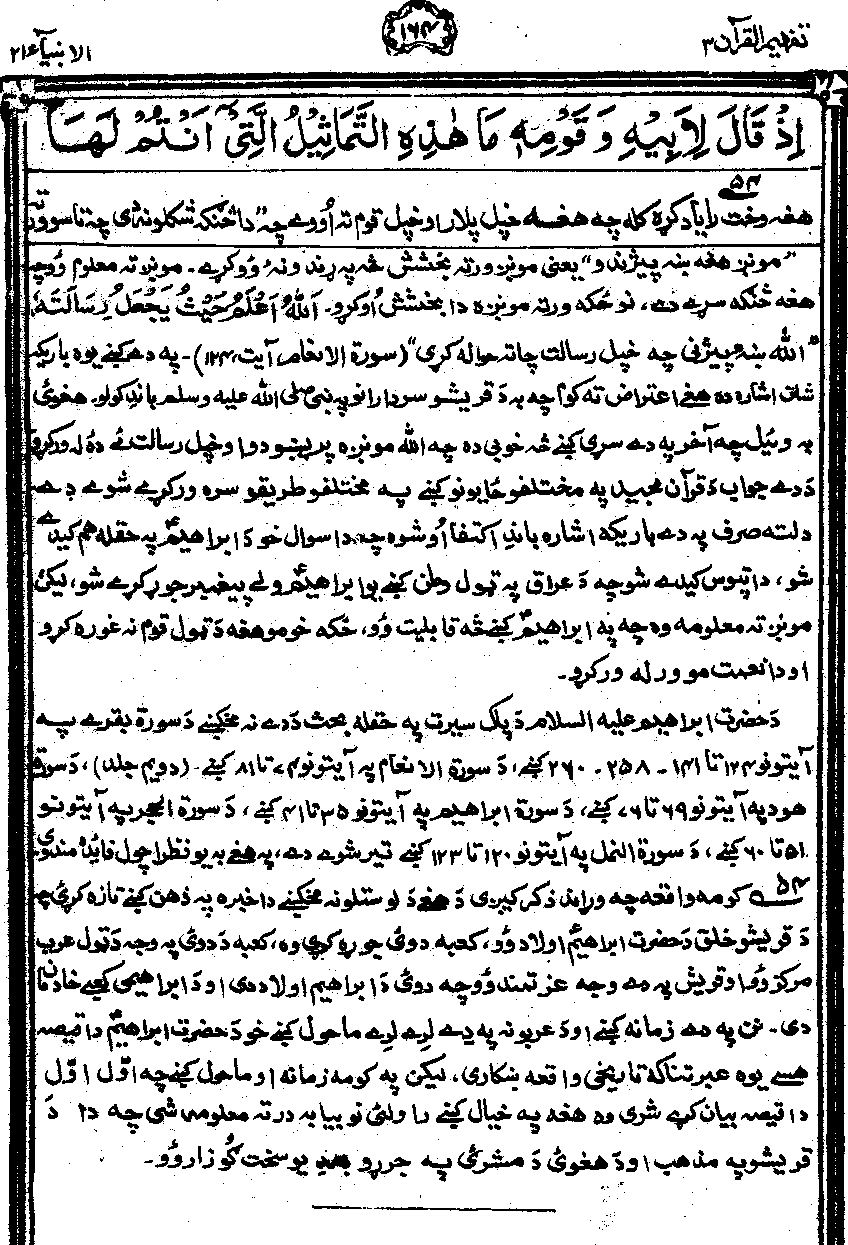 تفہیم القرآن ۳
۱۶۴
الانبیآء ۲۱
اِذْ قَالَ لِاَبِیْهِ وَ قَوْمِهٖ مَا هٰذِهِ التَّمَاثِیْلُ الَّتِیْۤ اَنْتُمْ لَهَا
۵۴
هغه وخت راياد کړه کله چه هغه خپل پلار او خپل قوم ته اُووے چہ "دا څنګه شکلونه دی چه تاسو ورته
"مونږه هغه ښه پیژندو" یعنی مونږه ورته بخشش څه په ړندونه وُو کړے۔ مونږه ته معلوم وُو چه
هغه څنګه سړے دے، نو ځکه ورته مونږه دا بخشش اُوکړو۔ اَللهُ اَعْلَمُ حَیْثُ یَجْعَلُ رِسَالَتَهٗ
"الله ښه پیژنی چه خپل رسالت چاته حواله کړی" (سورة الانعام، آیت ۱۲۴)۔ په دے کښے یوه باریکه
شان اشاره ده هغے اعتراض ته کوم چه به دَ قریشو سردارانو په نبی صلی الله علیه وسلم باندے کولو۔ هغوئ
به وئیل چه آخر په دے سړی کښے څه خوبی ده چه الله مونږه پریښودو او خپل رسالت ئے دهٔ له ورکړو
دَ دے جواب دَ قرآن مجید په مختلفو ځایونو کښے په مختلفو طریقو سره ورکړے شوے دے۔
دلته صرف په دے باریکه اشاره باندے اکتفا اُوشوه چه دا سوال خو دَ ابراهیمؑ په حقله هم کیدے
شو، دا تپوس کیدے شو چه دَ عراق په ټول وطن کښے یو ابراهیمؑ ولے پیغمبر جوړ کړے شو، لیکن
مونږه ته معلومه وه چه په ابراهیمؑ کښے څه قابلیت وُو، ځکه خو مو هغه دَ ټول قوم نه غوره کړو
او دا نعمت مو ورله ورکړو۔
دَ حضرت ابراهیم علیه السلام دَ پاک سیرت په حقله بحث دَ دے نه مخکښے دَ سورة بقرے په
آیتونو ۱۲۴ تا ۱۴۱ ۔ ۲۵۸ ۔ ۲۶۰ کښے، دَ سورة الانعام په آیتونو ۷۴ تا ۸۱ کښے۔ (دویم جلد)، دَ سورة
هود په آیتونو ۶۹ تا ۷۶ کښے، دَ سورة ابراهیم په آیتونو ۳۵ تا ۴۱ کښے، دَ سورة الحجر په آیتونو
۵۱ تا ۶۰ کښے، دَ سورة النمل په آیتونو ۱۲۰ تا ۱۲۳ کښے تیر شوے دے، په هغے به یو نظر اچول فائده مند وی
۵۴ کومه واقعه چه وړاندے ذکر کیږی دَ هغے دَ لوستلو نه مخکښے دا خبره په ذهن کښے تازه کړئ چه
دَ قریشو خلق دَ حضرت ابراهیمؑ اولاد وُو، کعبه دوئ جوړه کړے وه، کعبه دَ دوئ په وجه دَ ټول عرب
مرکز وُو او قریش په دے وجه عزتمند وُو چه دوئ دَ ابراهیم اولاد دی او دَ ابراهیمی کعبے خادمان
دی۔ نن په دے زمانه کښے او دَ عربو نه په دے لرے لرے ماحول کښے خو دَ حضرت ابراهیمؑ دا قیصه
هسے یوه عبرتناکه تاریخی واقعه ښکاری، لیکن په کومه زمانه او ماحول کښے چه اوّل اوّل
دا قیصه بیان کړے شوی وه هغه په خیال کښے راولئ نو بیا به درته معلومه شی چه دا دَ
قریشو په مذهب او دَ هغوئ دَ مشرئ په جرړو باندے یو سخت ګوزار وُو۔